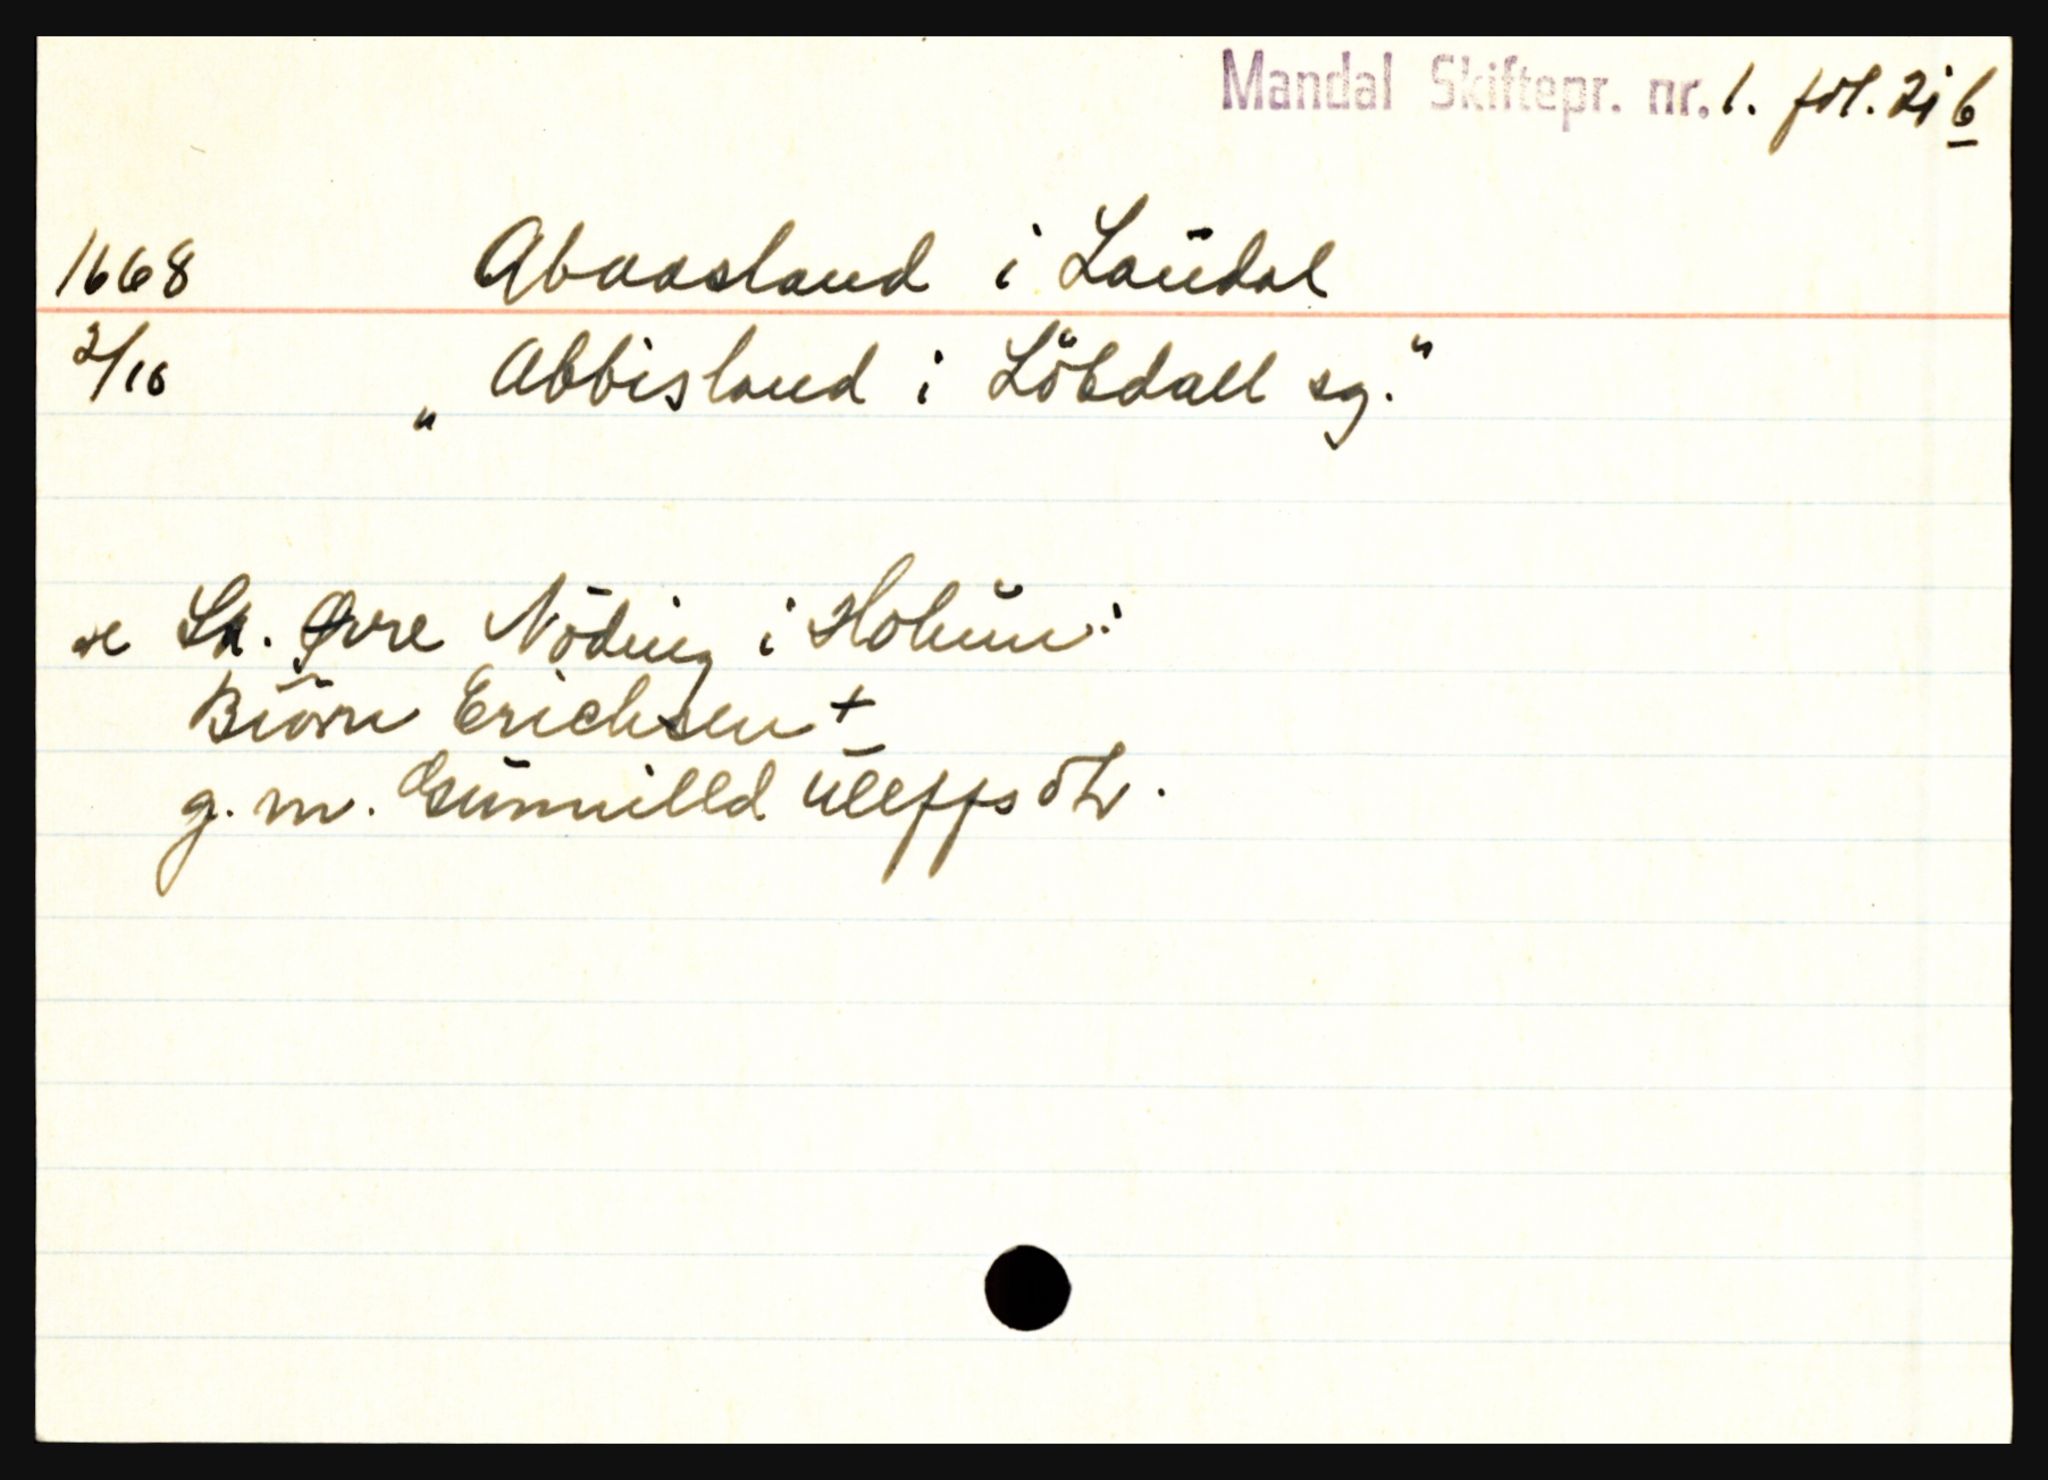 Mandal Skiftepr. nr. 1. fol. 21 b
1668 Abaasland i Laudal
2/10 „Abbisland i Löbdall sg."
se Sk. Øvre Nöding i Holum:
Biörn Erichsen +
g. m. Gunnilld Uleffsdtr.